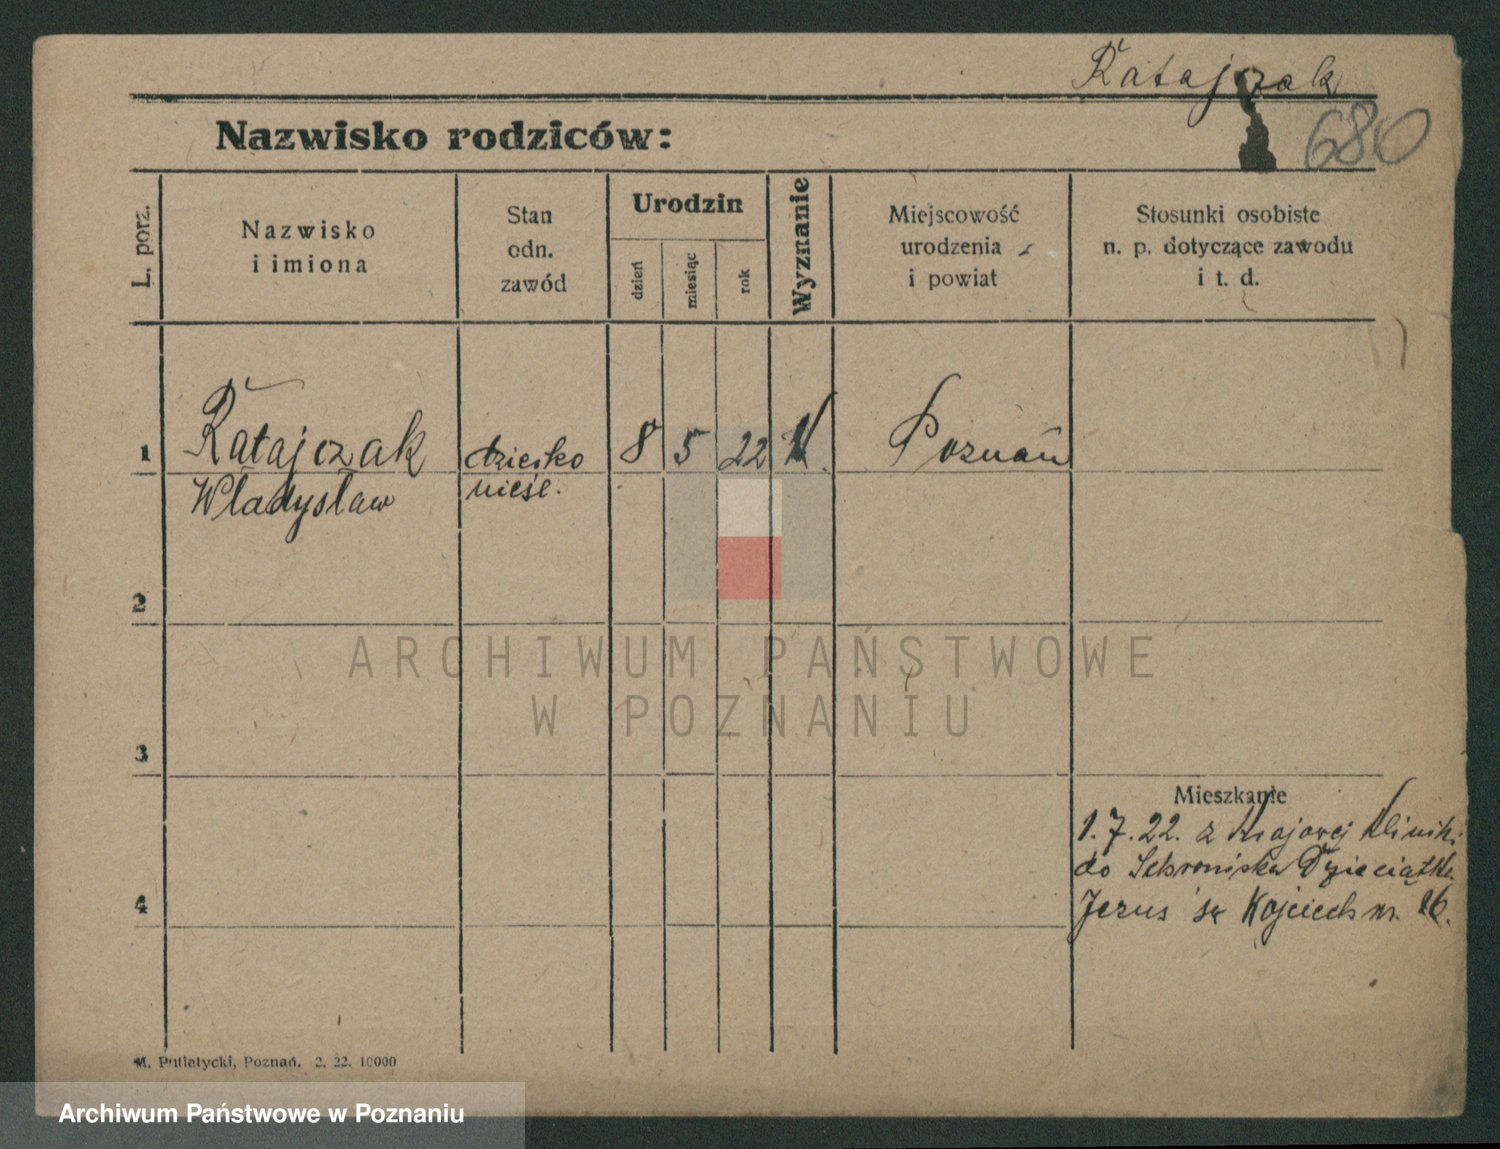 Ratajczak
680
Nazwisko rodziców:
L. porz.
Nazwisko
i imiona
Stan
odn.
zawód
Urodzin
dzień
miesiąc
rok
Wyznanie
Miejscowość
urodzenia
i powiat
Stosunki osobiste
n. p. dotyczące zawodu
i t. d.
1
Ratajczak
Władysław
dziecko
nieśl.
8
5
22
Poznań
2
3
4
Mieszkanie
1.7.22. z Krajowej Klinik.
do Schroniska Dzieciątka
Jezus św Wojciech nr.
M. Putiatycki, Poznań. 2. 22. 10000
ARCHIWUM PAŃSTWOWE
W POZNANIU
Archiwum Państwowe w Poznaniu